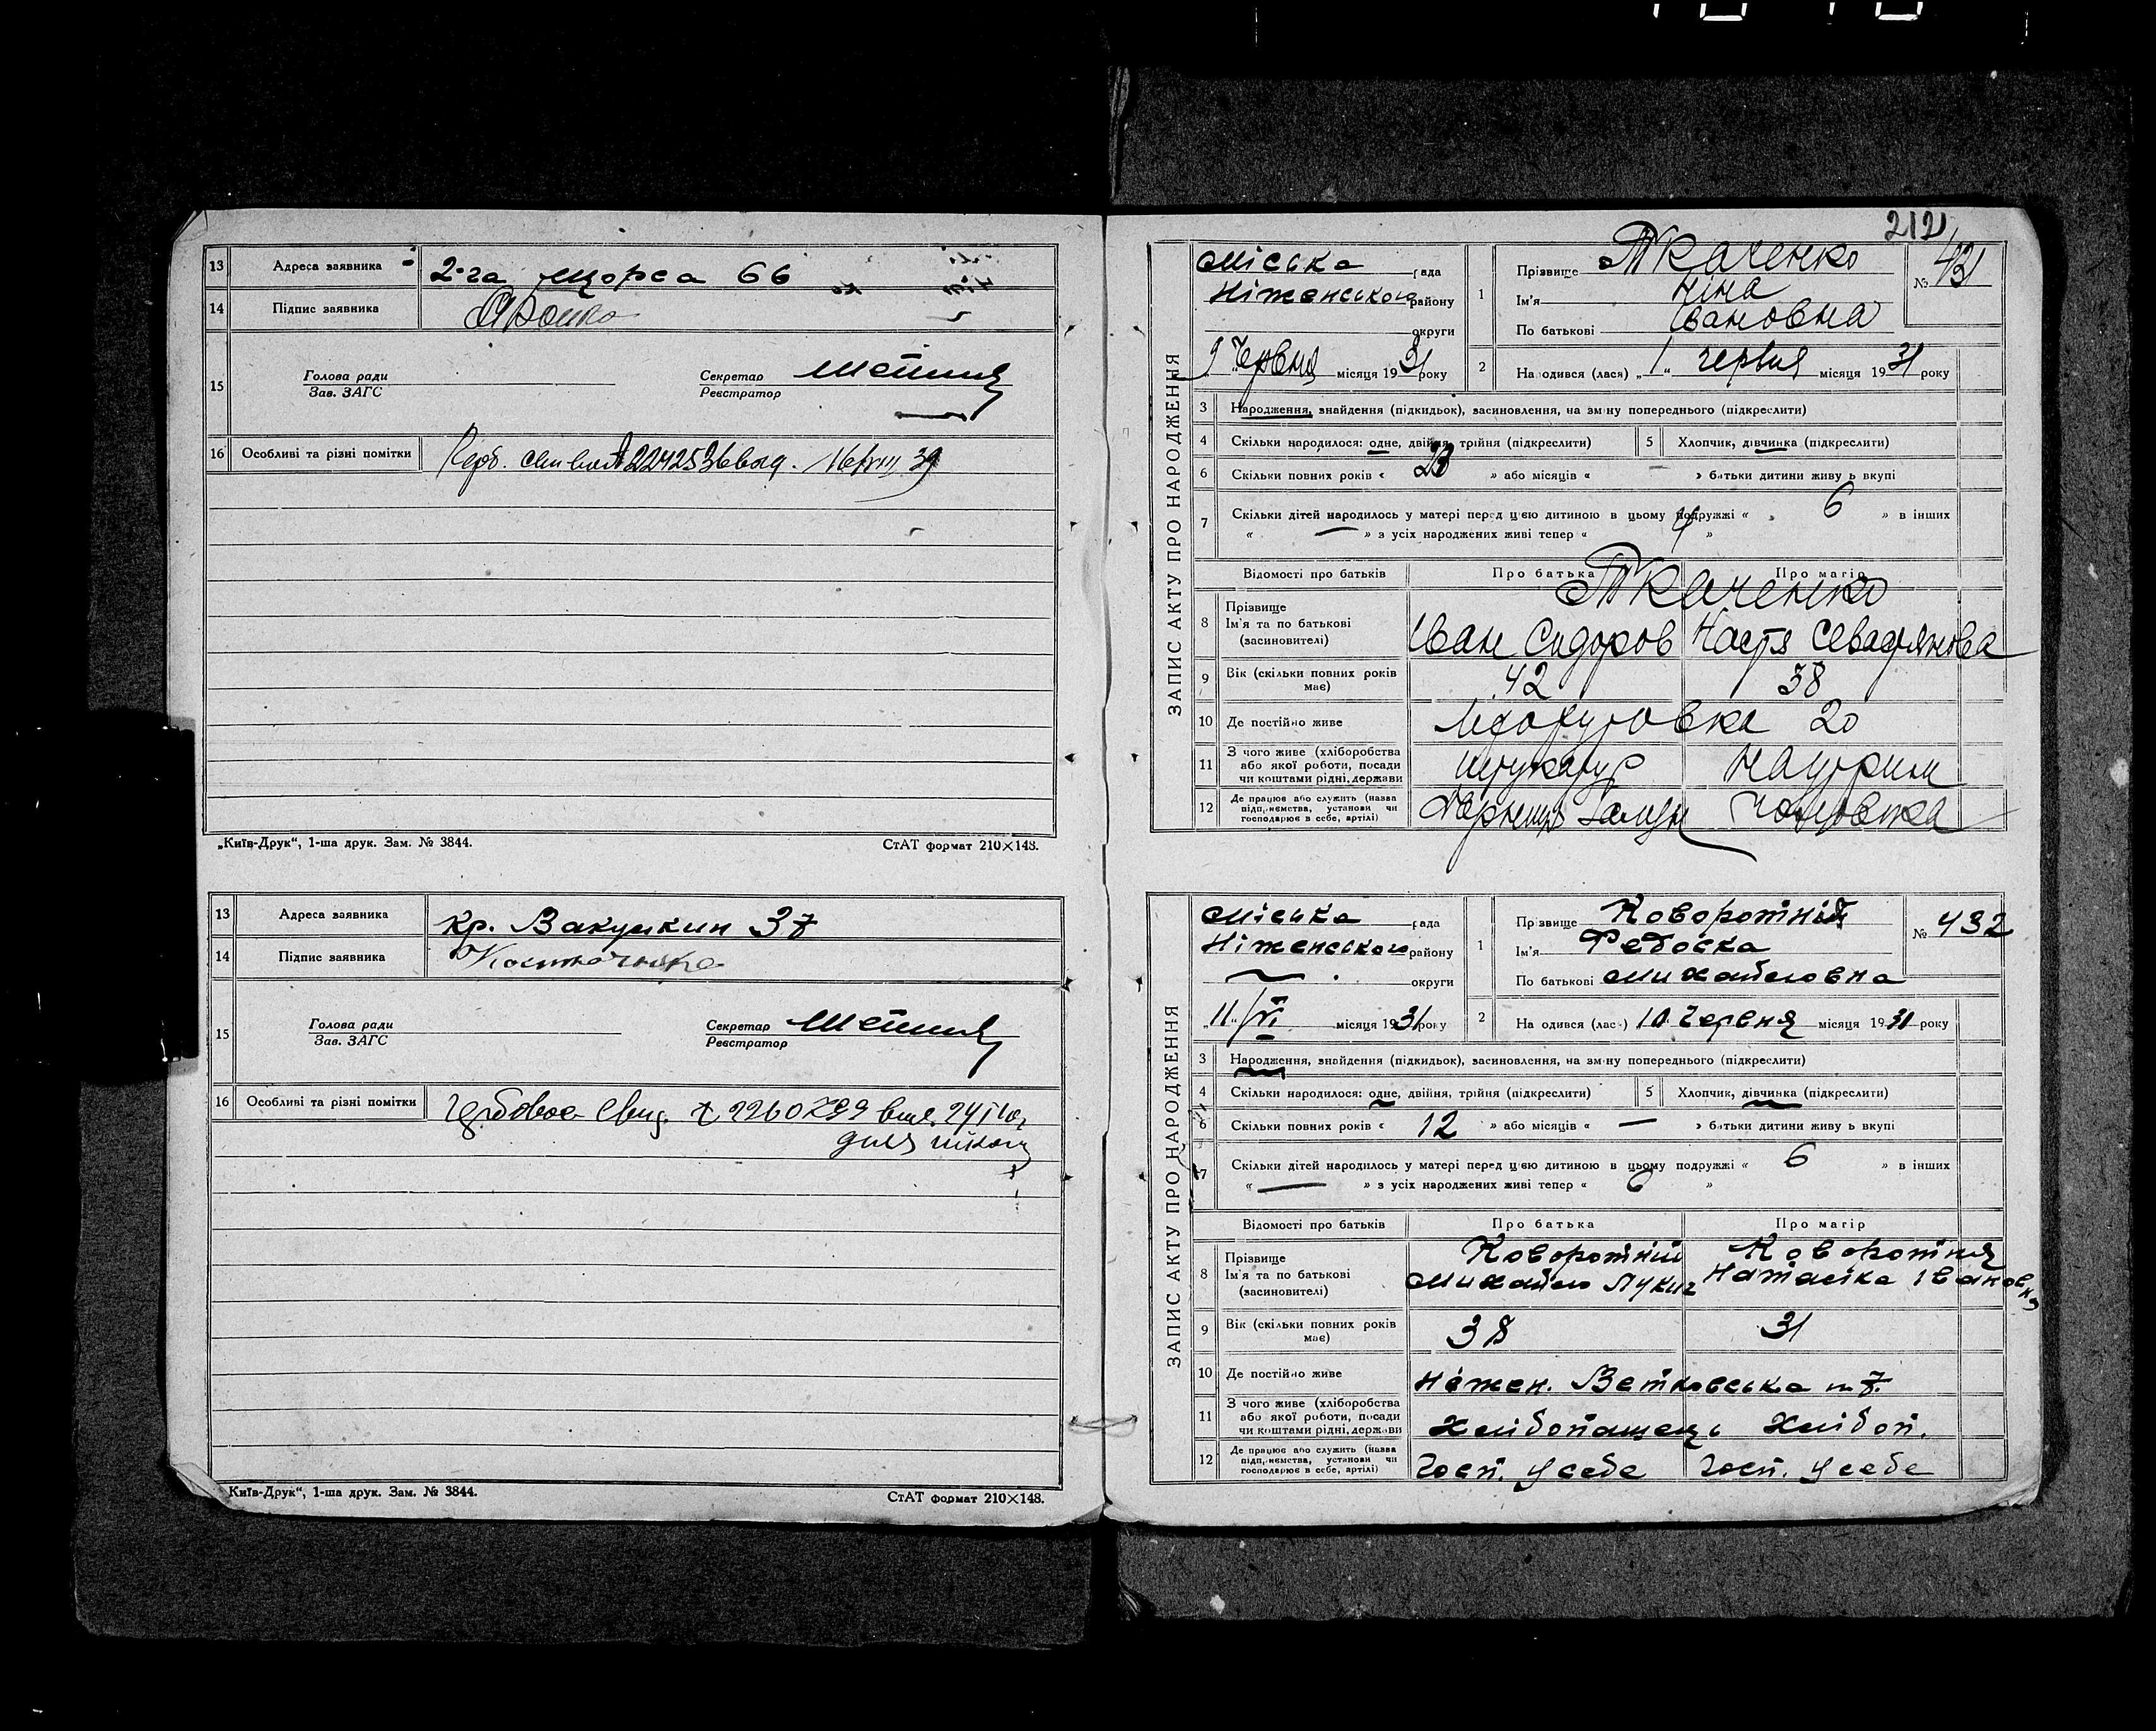 13 Адреса заявника 2-га Щорса 66
14 Підпис заявника
15 Голова ради Секретар
Зав. ЗАГС Реєстратор
16 Особливі та різні помітки
„Київ-Друк“, 1-ша друк. Зам. № 3844. СтАТ формат 210×148.
13 Адреса заявника кр. Вакулкин 37
14 Підпис заявника
15 Голова ради Секретар
Зав. ЗАГС Реєстратор
16 Особливі та різні помітки
Київ-Друк“, 1-ша друк. Зам. № 3844. СтАТ формат 210×148.
212
ЗАПИС АКТУ ПРО НАРОДЖЕННЯ
Міська рада
Ніженського району
округи
9 Червня місяця 1931 року
1 Прізвище Ткаченко
Ім'я Ніна
По батькові Івановна
№ 431
2 Народився (лася) „1“ червня місяця 1931 року
3 Народження, знайдення (підкидьок), засиновлення, на зміну попереднього (підкреслити)
4 Скільки народилося: одне, двійня, трійня (підкреслити) 5 Хлопчик, дівчинка (підкреслити)
6 Скільки повних років « 23 » або місяців « — » батьки дитини живуть вкупі
7 Скільки дітей народилось у матері перед цією дитиною в цьому подружжі « 6 » в інших
« — » з усіх народжених живі тепер « 4 »
Відомості про батьків Про батька Про матір
8 Прізвище Ткаченко
Ім'я та по батькові Іван Сидоров Настя
(засиновителі)
9 Вік (скільки повних років має) 42 38
10 Де постійно живе 20
11 З чого живе (хліборобства
або якої роботи, посади штукатур
чи коштами рідні, держави
12 Де працює або служить (назва
підприємства, установи чи
господарює в себе, артілі)
ЗАПИС АКТУ ПРО НАРОДЖЕННЯ
Міська рада
Ніженського району
округи
„11“/VI місяця 1931 року
1 Прізвище Коворотній
Ім'я Федоска
По батькові Михайловна
№ 432
2 Народився (лась) 10 Червня місяця 1931 року
3 Народження, знайдення (підкидьок), засиновлення, на зміну попереднього (підкреслити)
4 Скільки народилося: одне, двійня, трійня (підкреслити) 5 Хлопчик, дівчинка (підкреслити)
6 Скільки повних років « 12 » або місяців « — » батьки дитини живуть вкупі
7 Скільки дітей народилось у матері перед цією дитиною в цьому подружжі « 6 » в інших
« — » з усіх народжених живі тепер « 6 »
Відомості про батьків Про батька Про матір
8 Прізвище Коворотній Коворотня
Ім'я та по батькові Михайло Лукич Наталка Івановна
(засиновителі)
9 Вік (скільки повних років має) 38 31
10 Де постійно живе Ніжен.
11 З чого живе (хліборобства
або якої роботи, посади Хлібопашець Хлібоп.
чи коштами рідні, держави
12 Де працює або служить (назва
підприємства, установи чи Госп. у себе Госп. у себе
господарює в себе, артілі)